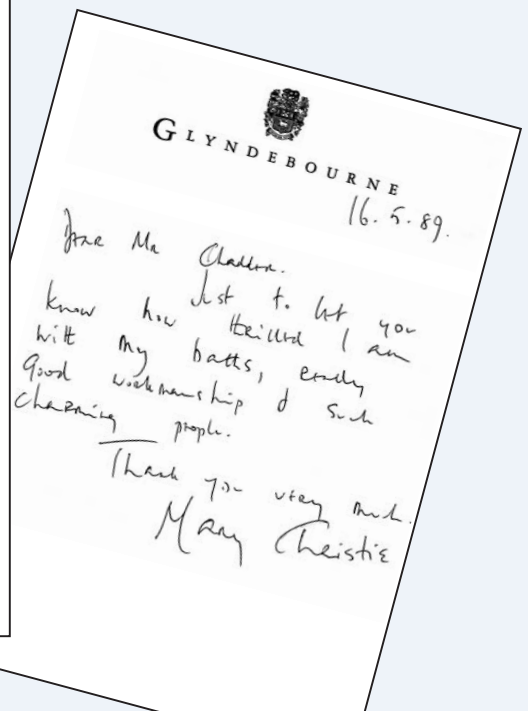 GLYNDEBOURNE
16.5.89.
Dear Mr
Just to let you
know how thrilled I am
with my baths, really
good workmanship & such
charming people.
Thank you very much.
Mary Christie